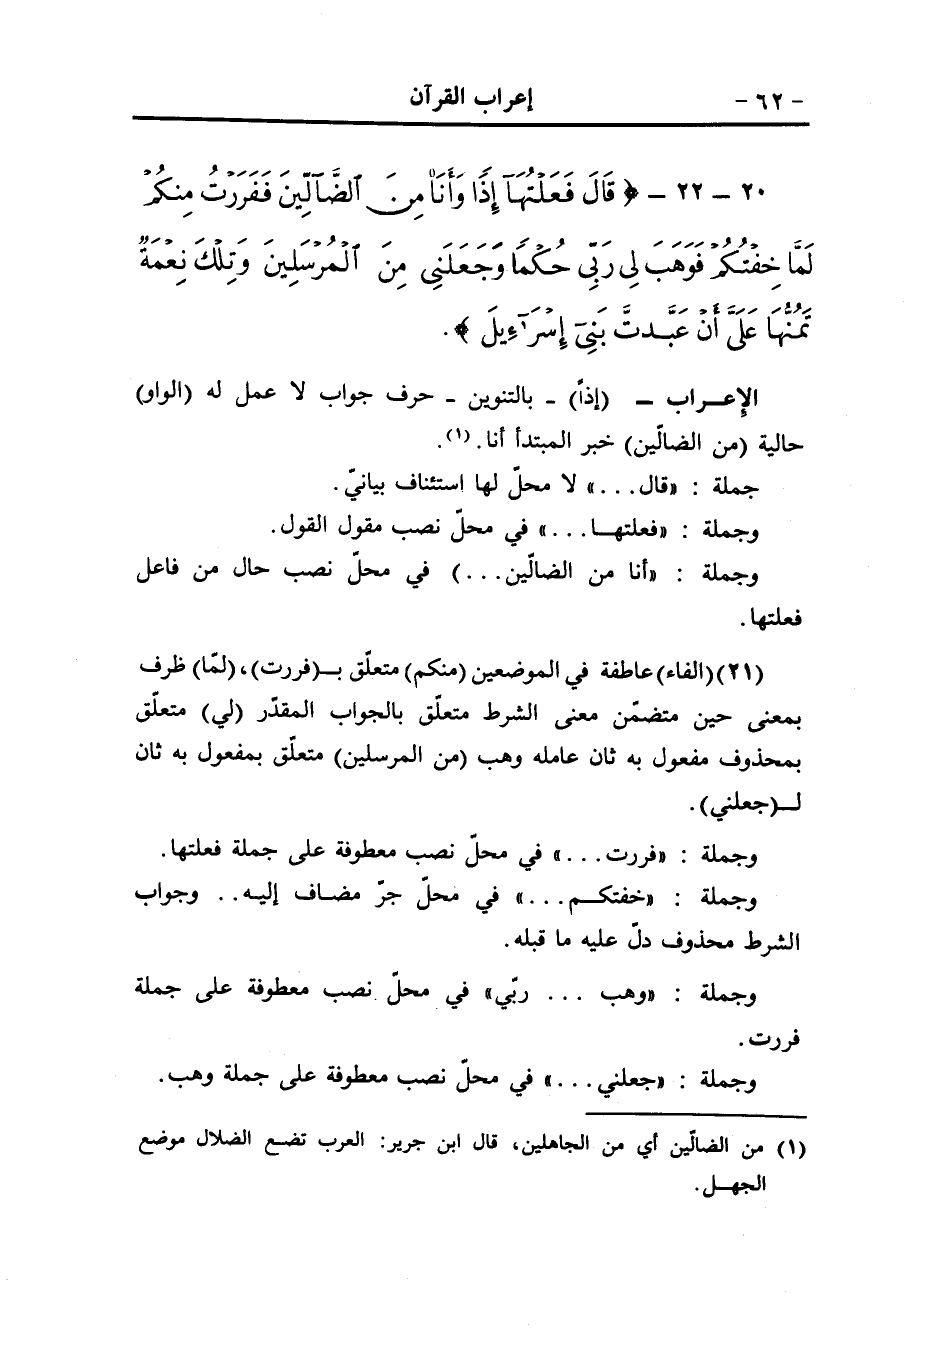 - ٦٢ - إعراب القرآن
٢٠ - ٢٢ - ﴿ قَالَ فَعَلْتُهَآ إِذًا وَأَنَا۠ مِنَ ٱلضَّآلِّينَ فَفَرَرْتُ مِنكُمْ
لَمَّا خِفْتُكُمْ فَوَهَبَ لِى رَبِّى حُكْمًا وَجَعَلَنِى مِنَ ٱلْمُرْسَلِينَ وَتِلْكَ نِعْمَةٌ
تَمُنُّهَا عَلَىَّ أَنْ عَبَّدتَّ بَنِىٓ إِسْرَٰٓءِيلَ ﴾.
الإعـــراب - (إذاً) - بالتنوين - حرف جواب لا عمل له (الواو)
حالية (من الضالّين) خبر المبتدأ أنا.(١).
جملة : «قال...» لا محلّ لها استئناف بيانيّ.
وجملة : «فعلتهـا...» في محلّ نصب مقول القول.
وجملة : «أنا من الضالّين...) في محلّ نصب حال من فاعل
فعلتها.
(٢١)(الفاء) عاطفة في الموضعين (منكم) متعلّق بـ(فررت)، (لمّا) ظرف
بمعنى حين متضمّن معنى الشرط متعلّق بالجواب المقدّر (لي) متعلّق
بمحذوف مفعول به ثان عامله وهب (من المرسلين) متعلّق بمفعول به ثان
لـ(جعلني).
وجملة : «فررت...» في محلّ نصب معطوفة على جملة فعلتها.
وجملة : «خفتكـم...» في محلّ جرّ مضـاف إليـه.. وجواب
الشرط محذوف دلّ عليه ما قبله.
وجملة : «وهب ... ربّي» في محلّ نصب معطوفة على جملة
فررت.
وجملة : «جعلني...» في محلّ نصب معطوفة على جملة وهب.
(١) من الضالّين أي من الجاهلين، قال ابن جرير: العرب تضـع الضلال موضع
الجهـل.